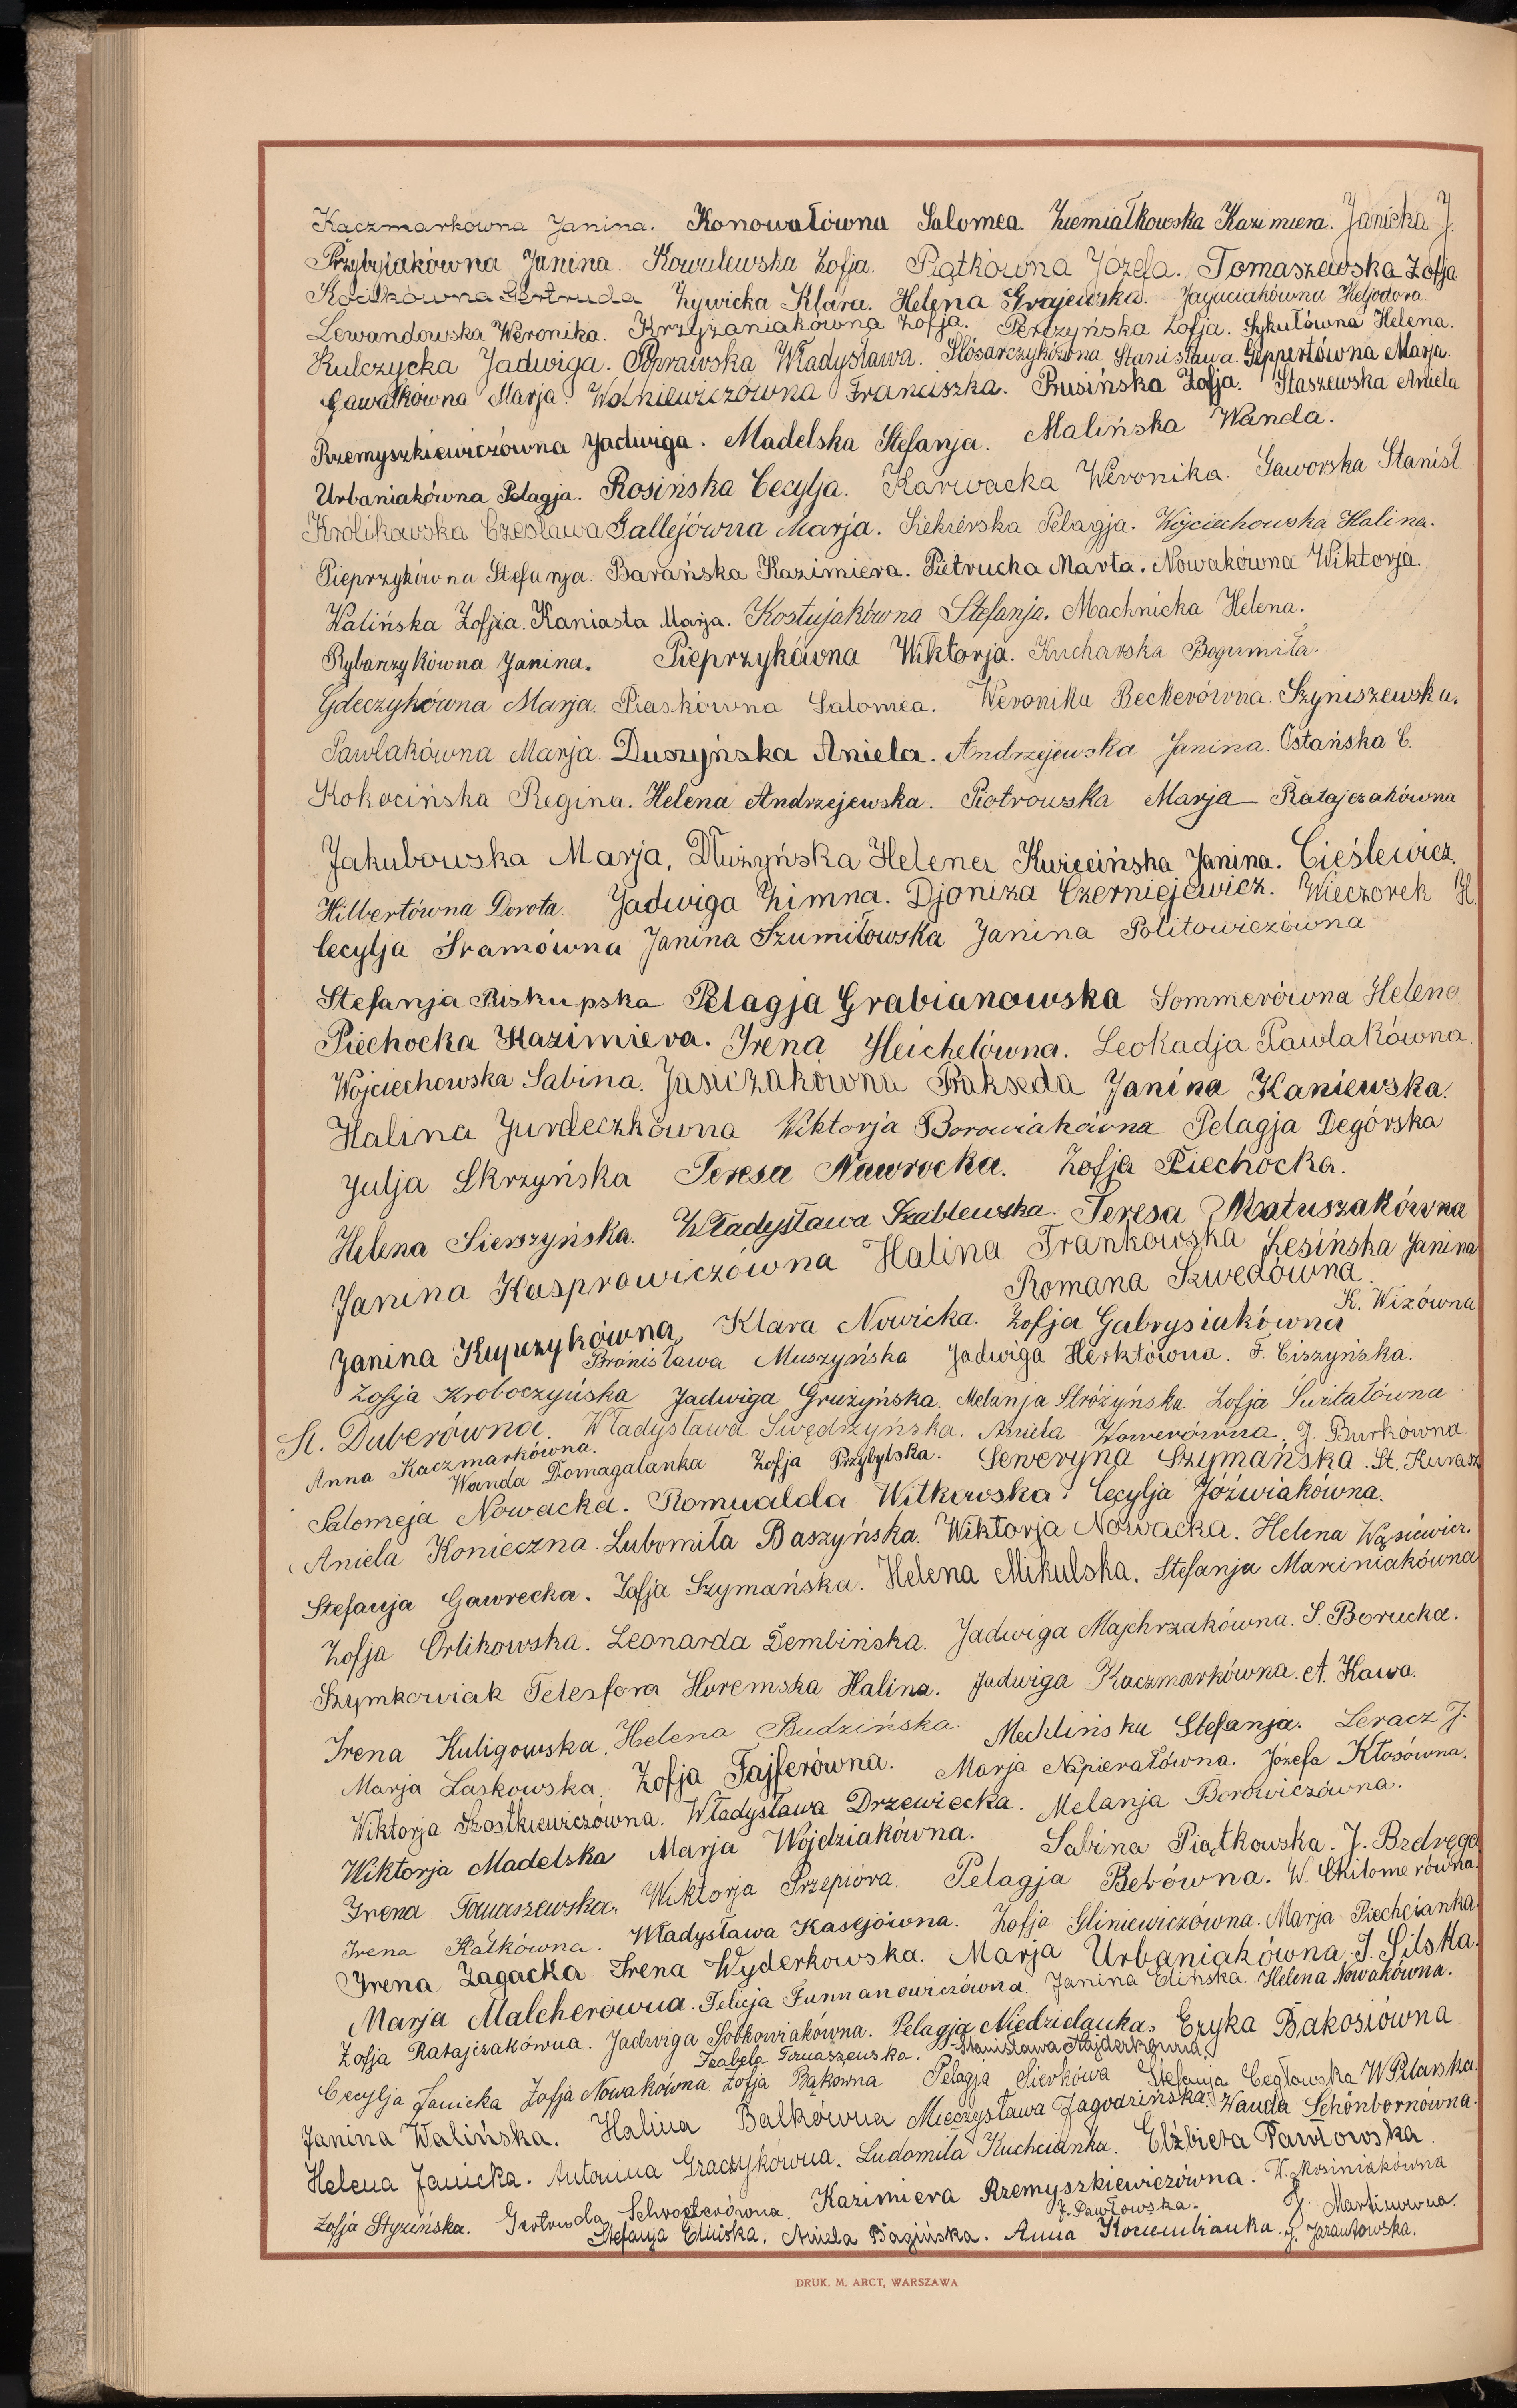 Kaczmarkówna Janina. Konowałówna Salomea. Ziemiałkowska Kazimiera. Janicka J.
Przybylakówna Janina. Kowalewska Zofja. Piątkówna Józefa. Tomaszewska Zofja
Gertruda Żywicka Klara. Helena Grajewska. Heljodora.
Lewandowska Weronika. Krzyżaniakówna Zofja. Perczyńska Zofja. Sykułówna Helena.
Kulczycka Jadwiga. Poprawska Władysława. Ślósarczykówna Stanisława. Geppertówna Marja.
Gawałkówna Marja. Wolniewiczówna Franciszka. Prusińska Zofja. Staszewska Aniela
Rzemyszkiewiczówna Jadwiga. Madelska Stefanja. Malińska Wanda.
Urbaniakówna Pelagja. Rosińska Cecylja. Karwacka Weronika. Gaworska Stanisł.
Królikowska Czesława Gallejówna Marja. Siekierska Pelagja. Wojciechowska Halina.
Pieprzykówna Stefanja. Barańska Kazimiera. Pietrucha Marta. Nowakówna Wiktorja.
Walińska Zofja. Kaniasta Marja. Kostujakówna Stefanja. Machnicka Helena.
Rybarzykówna Janina. Pieprzykówna Wiktorja. Kucharska Bogumiła.
Gdeczykówna Marja. Piaskówna Salomea. Weronika Beckerówna. Szyniszewska.
Pawlakówna Marja. Duszyńska Aniela. Andrzejewska Janina. Ostańska C.
Kokocińska Regina. Helena Andrzejewska. Piotrowska Marja Ratajczakówna
Jakubowska Marja. Dłużyńska Helena Kuzecińska Janina. Cieślewicz.
Hilbertówna Dorota. Jadwiga Zimna. Djoniza Czerniejewicz. Wieczorek H.
Cecylja Śramówna Janina Szumiłowska Janina Politowiczówna
Stefanja Biskupska Pelagja Grabianowska Sommerówna Helena
Piechocka Kazimiera. Irena Heichelówna. Leokadja Pawlakówna.
Wojciechowska Sabina. Jasiczakówna Prakseda Janina Kaniewska.
Halina Jurdeczkówna Wiktorja Borowiakówna Pelagja Degórska
Julja Skrzyńska Teresa Nawrocka. Zofja Piechocka.
Helena Sierszyńska. Władysława Szablewska. Teresa Matuszakówna
Janina Kasprowiczówna Halina Frankowska Lesińska Janina
Romana Szwedówna.
K. Wizówna
Janina Kupczykówna, Klara Nowicka. Zofja Gabrysiakówna
Bronisława Muszyńska Jadwiga Herktówna. F. Ciszyńska.
Zofja Kroboczyńska Jadwiga Grużyńska. Melanja Stróżyńska. Zofja
St. Duberówna. Władysława Swędrzyńska. Aniela J. Burkówna.
Anna Kaczmarkówna.
Wanda Domagalanka Zofja Przybylska. Seweryna Szymańska. St. Kurasz
Salomeja Nowacka. Romualda Witkowska. Cecylja Jóźwiakówna.
Aniela Konieczna. Lubomiła Baszyńska. Wiktorja Nowacka. Helena Wąsiewicz.
Stefanja Gawrecka. Zofja Szymańska. Helena Mikulska. Stefanja Marciniakówna
Zofja Orlikowska. Leonarda Dembińska. Jadwiga Majchrzakówna. S. Borucka.
Szymkowiak Telesfora Horemska Halina. Jadwiga Kaczmarkówna. A. Kawa.
Irena Kuligowska. Helena Budzińska. Mechlińska Stefanja. Leracz J.
Marja Laskowska. Zofja Fajferówna. Marja Napierałówna. Józefa Kłosówna.
Wiktorja Szostkiewiczówna. Władysława Drzewiecka. Melanja Borowiczówna.
Wiktorja Madelska Marja Wojdziakówna. Sabina Piątkowska. J. Bzdręga
Irena Tomaszewska. Wiktorja Przepióra. Pelagja Bebówna. W. Chilomerówna.
Irena Rałkówna. Władysława Kasejówna. Zofja Gliniewiczówna. Marja Piechcianka.
Irena Zagacka Irena Wyderkowska. Marja Urbaniakówna. I. Silska.
Marja Malcherówna. Felicja Furmanowiczówna. Janina Elińska. Helena Nowakówna.
Zofja Ratajczakówna. Jadwiga Sobkowiakówna. Pelagja Niedzielanka. Eryka Bakosiówna
Izabela Tomaszewska. Stanisława Najderkówna.
Cecylja Janicka Zofja Nowakówna. Zofja Bąkówna Pelagja Sierkówa Stefanja Cegłowska W Pilarska.
Janina Walińska. Halina Balkówna Mieczysława Jagodzińska. Wanda Schönbornówna.
Helena Janicka. Antonina Graczykówna. Ludomiła Kuchcianka. Elżbieta Pawłowska.
Zofja Styzińska. Gertruda Schroeterówna. Kazimiera Rzemyszkiewiczówna. W. Mośniakówna
J. Pawłowska. J. Martinówna.
Stefanja Elińska. Aniela Bagińska. Anna Koniembianka. J. Jarantowska.
DRUK. M. ARCT, WARSZAWA